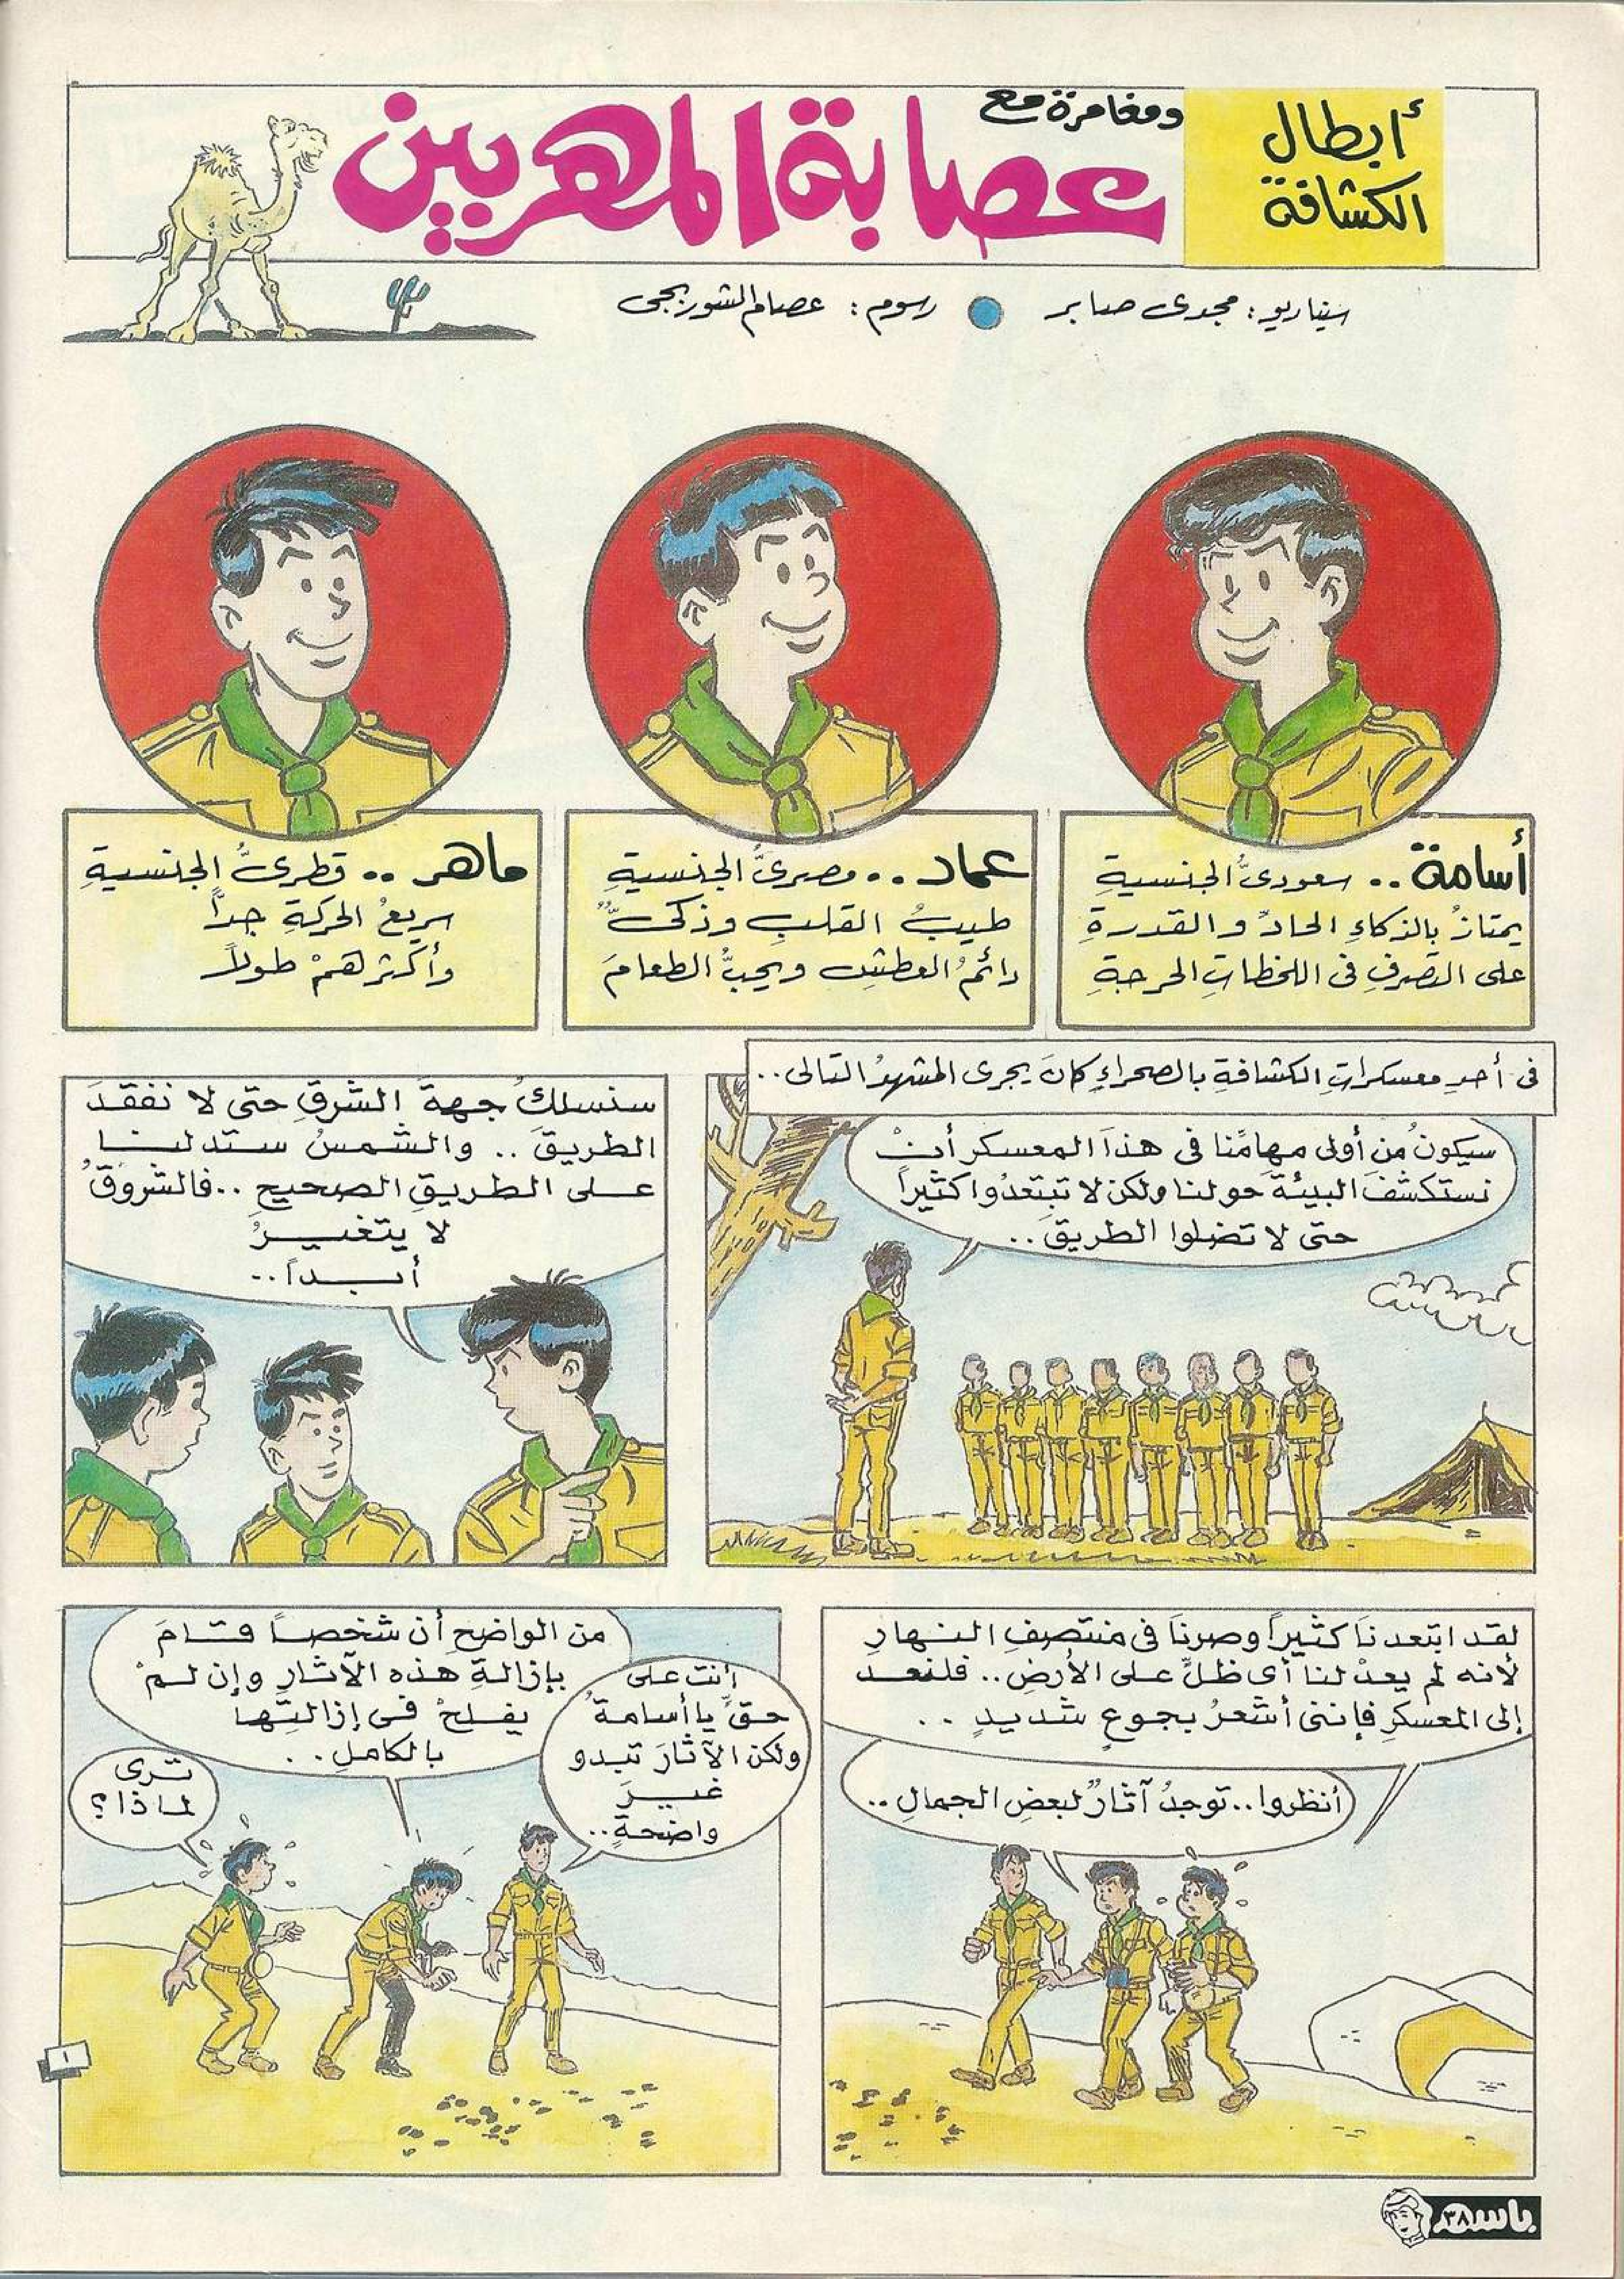 أبطال
الكشافة
ومغامرة مع
عصابة المهربين
سيناريو: مجدى صابر
رسوم: عصام الشوربجى
أسامة .. سعودىُّ الجنسيةِ
يمتازُ بالذكاءِ الحادِّ والقدرةِ
على التصرفِ فى اللحظاتِ الحرجةِ
عماد .. مصرىُّ الجنسيةِ
طيبُ القلبِ وذكىٌّ
دائمُ العطشِ ويحبُّ الطعامَ
ماهر .. قطرىُّ الجنسيةِ
سريعُ الحركةِ جداً
وأكثرهمْ طولاً
فى أحدِ معسكراتِ الكشافةِ بالصحراءِ كانَ يجرى المشهدُ التالى..
سيكونُ من أولى مهامِّنا فى هذا المعسكر أنْ
نستكشفَ البيئةَ حولنا ولكن لا تبتعدُوا كثيراً
حتى لا تضلوا الطريقَ..
سنسلكُ جهةَ الشرقِ حتى لا نفقدَ
الطريقَ .. والشمسُ ستدلنا
على الطريقِ الصحيحِ ..فالشروقُ
لا يتغيرُ
أبداً..
لقد ابتعدنَا كثيراً وصرنَا فى منتصفِ النهارِ
لأنه لم يعدْ لنا أى ظلٍّ على الأرضِ.. فلنعد
إلى المعسكرِ فإننى أشعرُ بجوعٍ شديدٍ ..
أنظروا..توجدُ آثارٌ لبعضِ الجمالِ..
أنت على
حقٍّ يا أسامةُ
ولكن الآثارَ تبدو
غيرَ
واضحةٍ..
من الواضحِ أن شخصاً قامَ
بإزالةِ هذه الآثارِ وإن لمْ
يفلحْ فى إزالتها
بالكاملِ..
تُرى
لماذا؟
١
باسم
٣٨